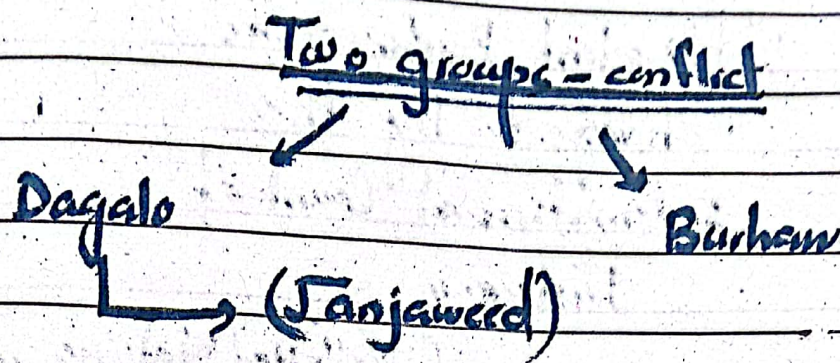 Two groups - conflict
Dagalo
Burhan
(Janjaweed)